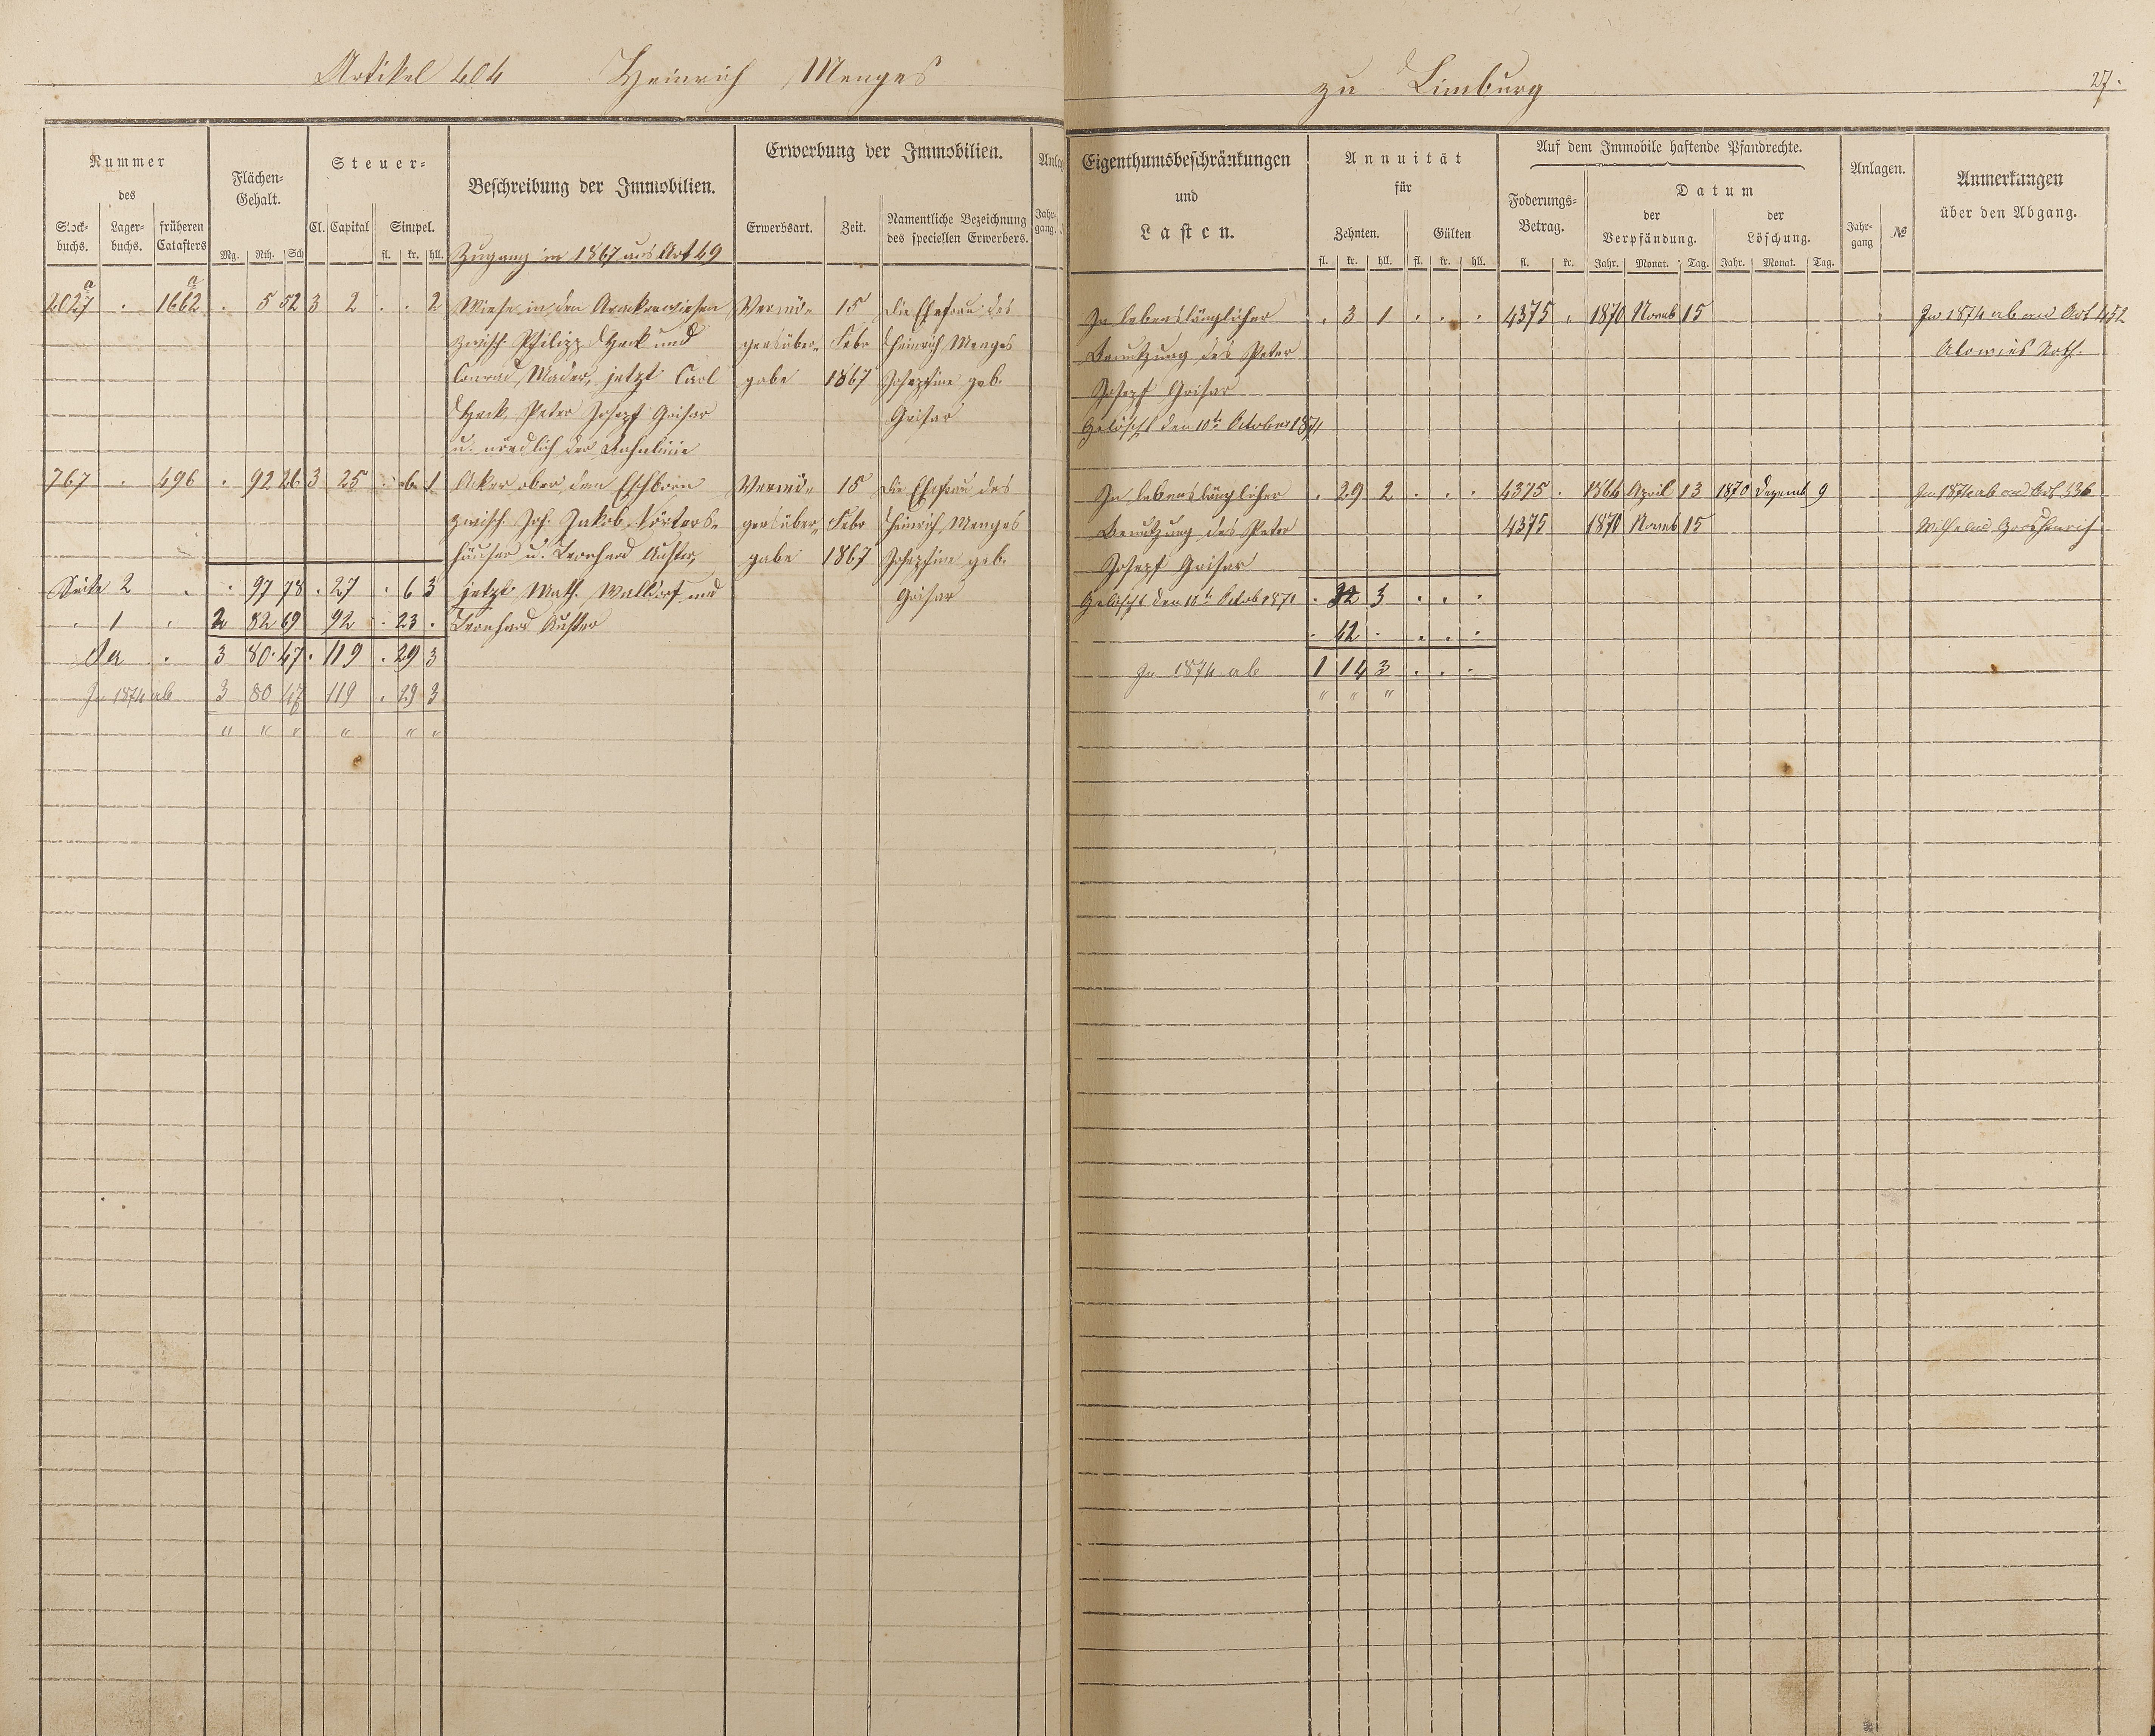 Artikel 404 Heinrich Menges
zu Limburg
27.
Nummer
des
Stock-
buchs.
Lager-
buchs.
früheren
Catasters
Flächen-
Gehalt.
Mg. Rth. Sch
Steuer-
Cl. Capital Simpel.
fl. kr. hll.
Beschreibung der Immobilien.
Zugang in 1867 aus Art 49
Erwerbung der Immobilien.
Erwerbsart. Zeit. Namentliche Bezeichnung
des speciellen Erwerbers.
Jahr-
gang.
Eigenthumsbeschränkungen
und
Lasten.
Annuität
für
Zehnten. Gülten
fl. kr. hll. fl. kr. hll.
Auf dem Immobile haftende Pfandrechte.
Foderungs-
Betrag.
fl. kr.
Datum
der
Verpfändung.
der
Löschung.
Jahr. Monat. Tag. Jahr. Monat. Tag.
Anlagen.
Jahr-
gang №
Anmerkungen
über den Abgang.
2027 a . 1662 a . 5 52 3 2 . . 2 Wiese in den
zwisch. Philipp Heck und
Conrad Mader, jetzt Carl
Heck, Peter Josef Grisar
u. nördlich der Bahnlinie
Vermö-
gensüber-
gabe
15
Febr
1867
Die Ehefrau des
Heinrich Menges
Josephine geb.
Grisar
In lebenslänglicher
Benutzung des Peter
Joseph Grisar
Gelöscht den 10te October 1871
. 3 1 . . .
4375 . 1870 Novmb 15
In 1874 ab an Art 452
767 . 496 . 92 26 3 25 . 6 1 Acker ober dem Eschborn
zwisch. Joh. Jakob
häuser u. Leonhard
jetzt Math. Walldorf und
Leonhard
Vermö-
gensüber-
gabe
15
Febr
1867
Die Ehefrau des
Heinrich Menges
Josephine geb.
Grisar
In lebenslänglicher
Benutzung des Peter
Joseph Grisar
Gelöscht den 10te Octob 1871
. 29 2 . . .
4375 . 1864 April 13 1870 Dezemb 9
4375 1870 Novmb 15
In 1874 ab an Art 336
Seite 2 . . 97 78 . 27 . 6 3
. 32 3 . . .
" 1 " 2 82 69 92 . 23 .
. 42 . . . .
Sa . 3 80 47 . 119 . 29 3
In 1874 ab 1 14 3 . . .
In 1874 ab 3 80 47 119 . 29 3
" " "
" " " " " "